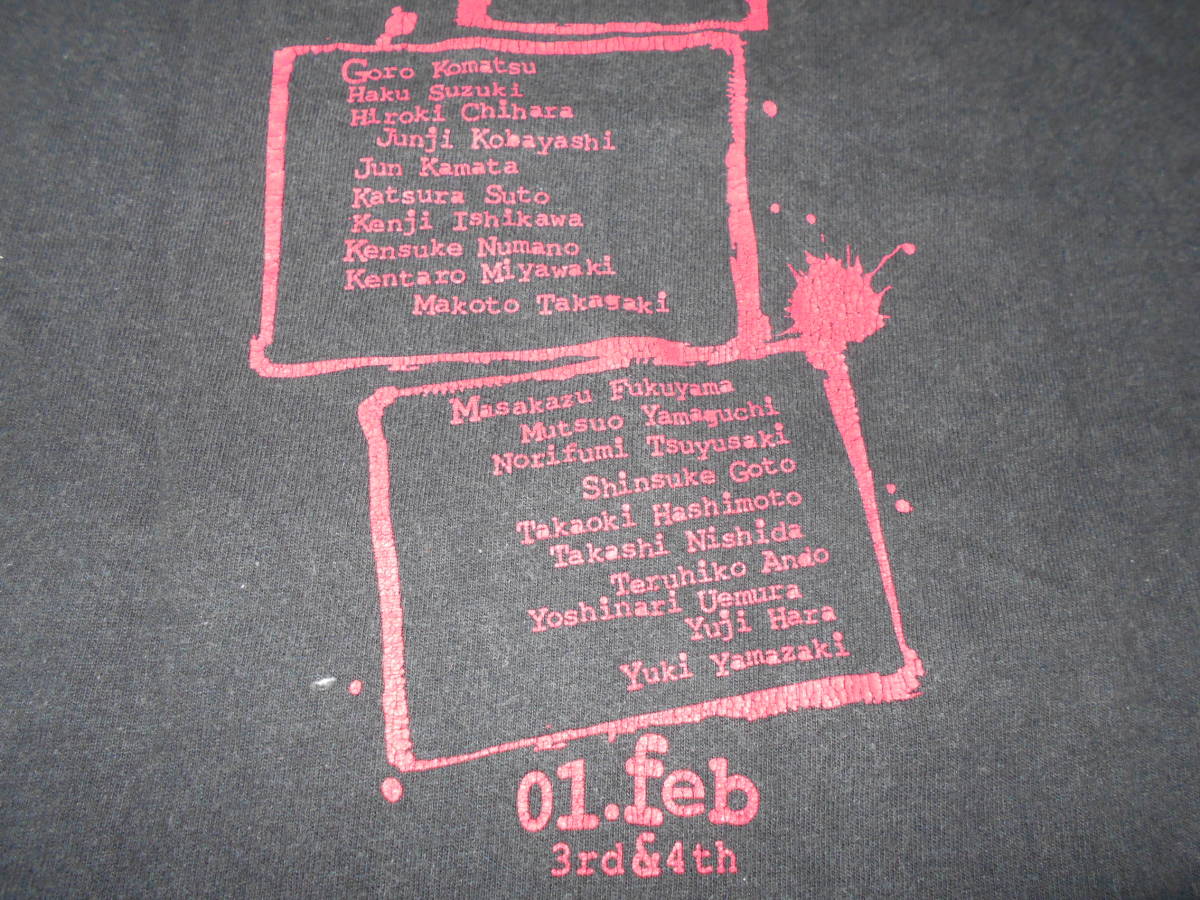 Goro Komatsu
Haku Suzuki
Hiroki Chihara
Junji Kobayashi
Jun Kamata
Katsura Suto
Kenji Ishikawa
Kensuke Numano
Kentaro Miyawaki
Makoto Takagaki
Masakazu Fukuyama
Mutsuo Yamaguchi
Norifumi Tsuyusaki
Shinsuke Goto
Takaoki Hashimoto
Takashi Nishida
Teruhiko Ando
Yoshinari Uemura
Yuji Hara
Yuki Yamazaki
01.feb
3rd&4th